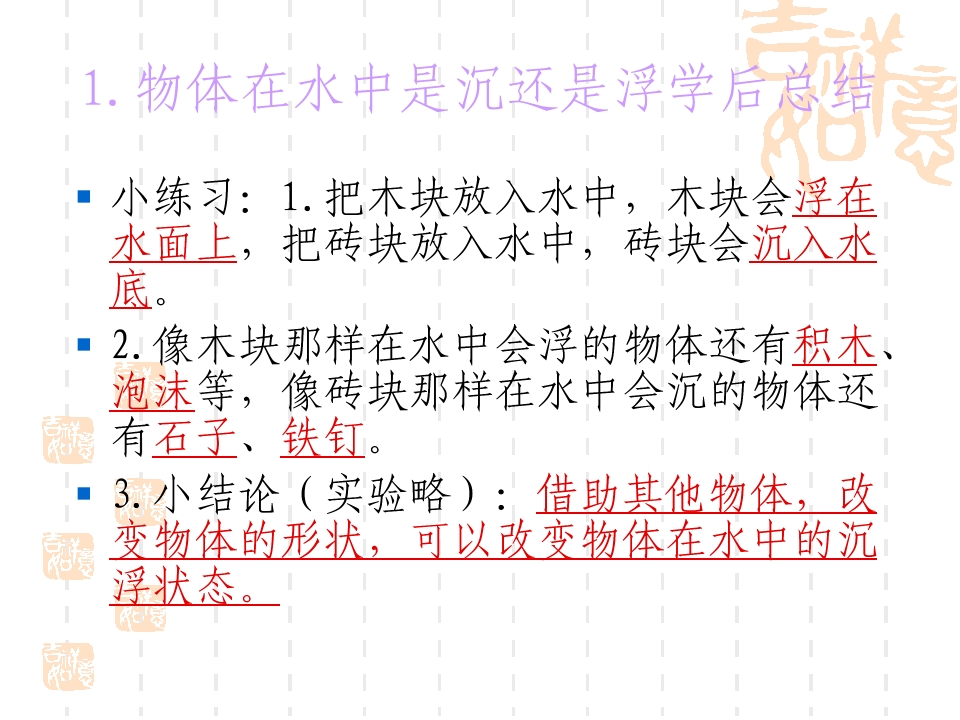 1.物体在水中是沉还是浮学后总结
小练习：1.把木块放入水中，木块会浮在
水面上，把砖块放入水中，砖块会沉入水
底。
2.像木块那样在水中会浮的物体还有积木、
泡沫等，像砖块那样在水中会沉的物体还
有石子、铁钉。
3.小结论（实验略）：借助其他物体，改
变物体的形状，可以改变物体在水中的沉
浮状态。
吉祥如意
吉祥如意
吉祥如意
吉祥如意
吉祥如意
吉祥如意
吉祥如意